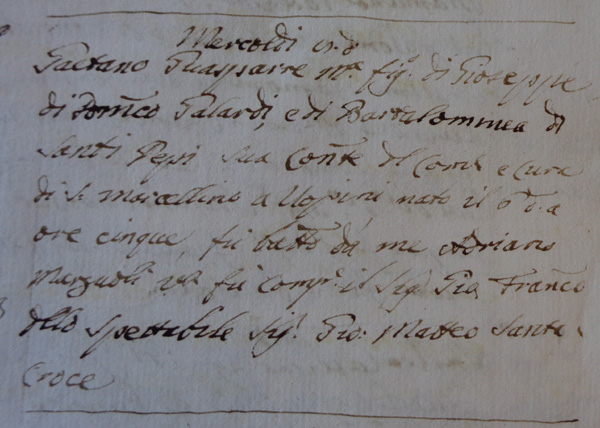 Mercoldi
Gaetano Guasparre m.te fig.o di Gioseppe
di Dom.co Galardi, e di Bartolommea di
Santi Pepi sua Con.te del Com.e e Cura
di S. Marcellino a nato il d.o a
ore cinque, fù batt.o da me Adriano
fù Comp.e il Sig.r Gio. Franc.o
dello Spettabile Sig.r Gio: Matteo Santa
Croce